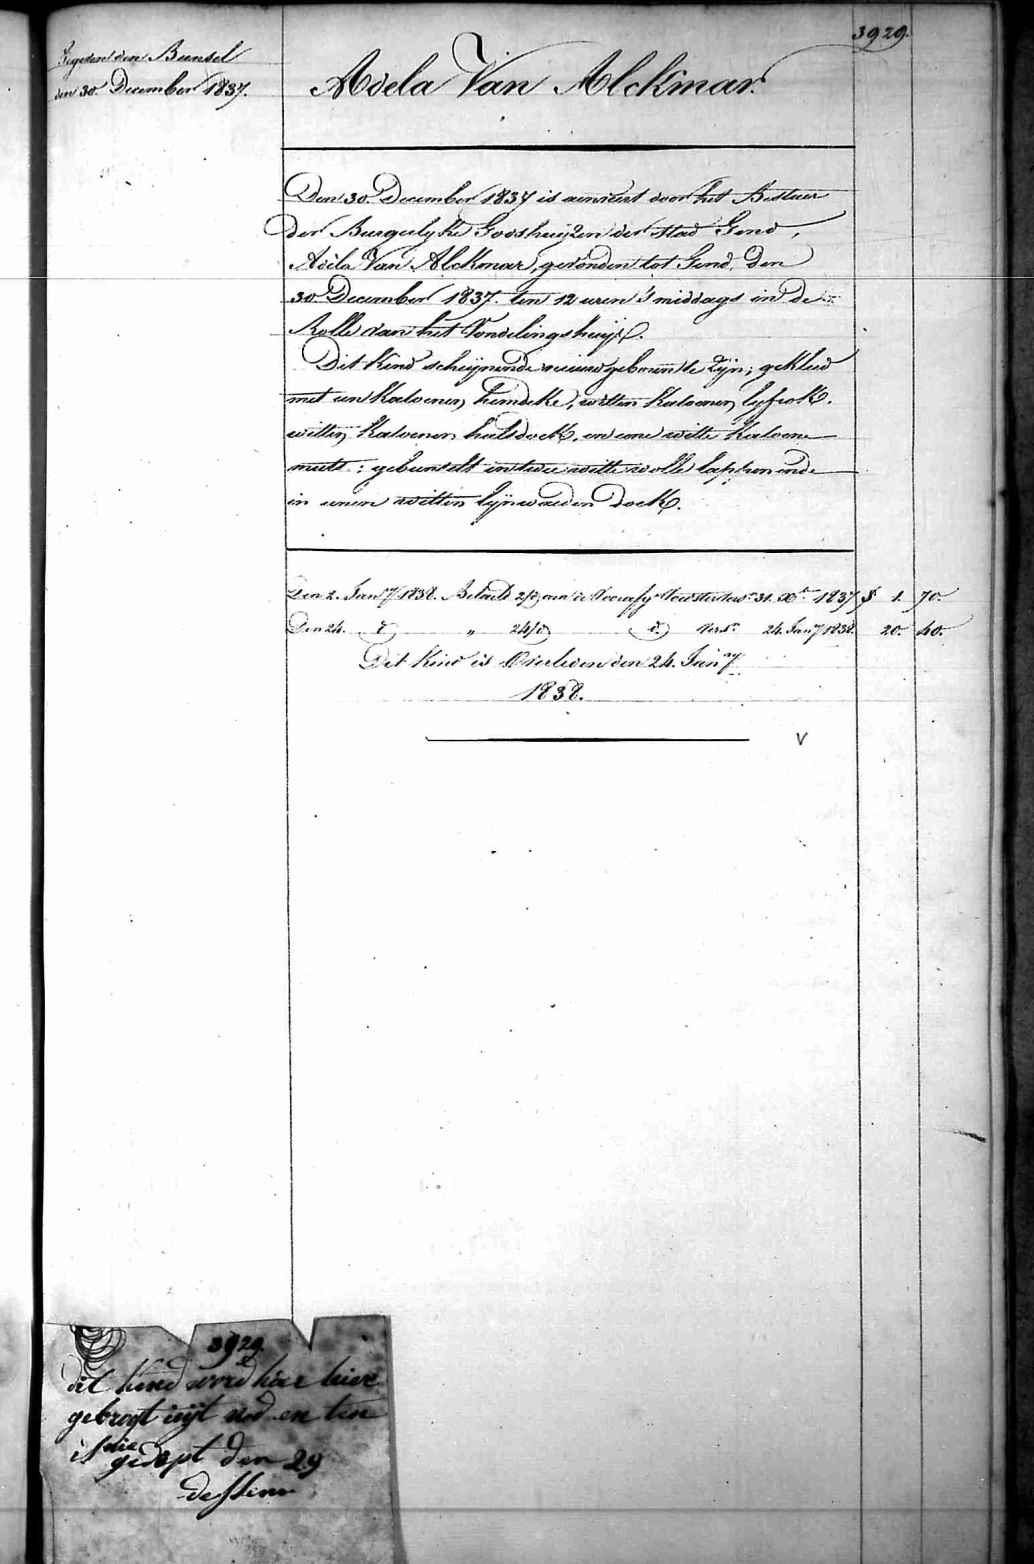 3929.
Gegeven den Bunsel
den 30 December 1837.
Adela Van Alckmar.
Den 30 December 1837 is aenveert door het Bestuer
der Burgerlyke Godshuijzen der stad Gend,
Adela Van Alckmar, gevonden tot Gend, den
30 December 1837. ten 12 uren 's middags in de
Rolle van het Vondelingshuijs.
Dit Kind scheijnende nieuwgeboren te zijn; gekleed
met een Katoenen hemdeke, witten Katoenen lyfrok.
witten Katoenen halsdoek, en eene witte Katoene
muts: gebunselt in twee witte wolle lappen ende
in eenen witten lynwaeden doek.
Den 2. Jan.ry 1838. Betaeld aen de 31. Xb.r 1837 f 1. 70.
Den 24. d° " 24 d° Vers. 24. Jan.ry 1838. 20. 40.
Dit Kind is Overleden den 24. Jan.ry
1838.
V
3929.
dit kind word hier
gebrogt uijt nod en ten
is nie gedopt den 29